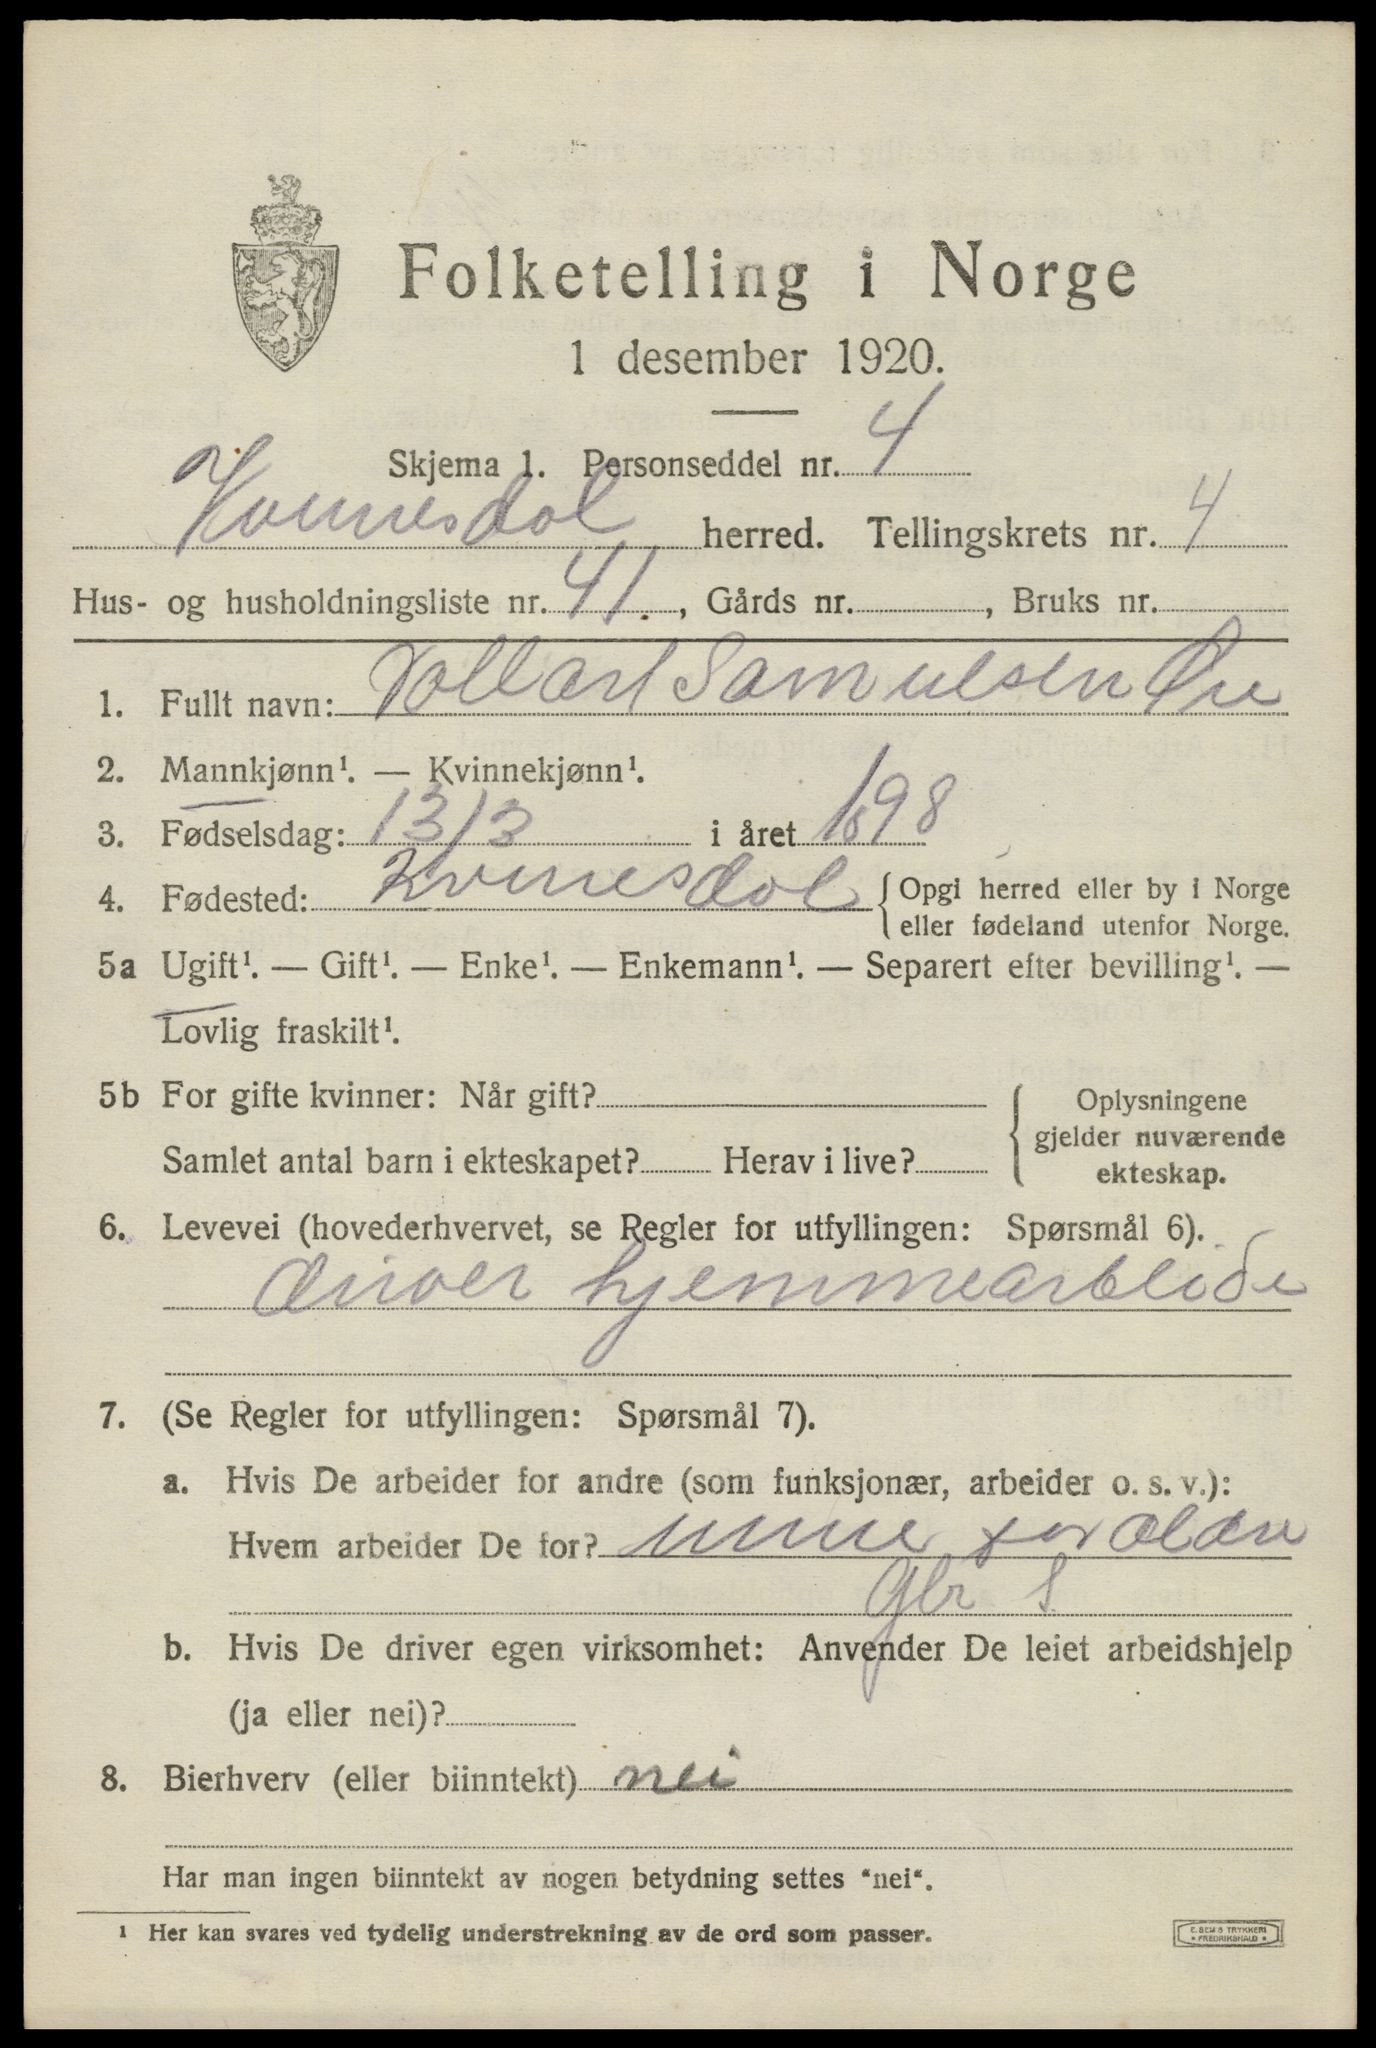 Folketelling i Norge
1 desember 1920.
Skjema 1. Personseddel nr. 4
Kvinesdal herred. Tellingskrets nr. 4
Hus- og husholdningsliste nr. 41, Gårds nr. , Bruks nr.
1. Fullt navn: Tollart Samuelsen Øie
2. Mannkjønn¹. — Kvinnekjønn¹.
3. Fødselsdag: 13/3 i året 1898
4. Fødested: Kvinesdal { Opgi herred eller by i Norge
eller fødeland utenfor Norge.
5a Ugift¹. — Gift¹. — Enke¹. — Enkemann¹. — Separert efter bevilling¹. —
Lovlig fraskilt¹.
5b For gifte kvinner: Når gift? { Oplysningene
gjelder nuværende
Samlet antal barn i ekteskapet? Herav i live?
ekteskap.
6. Levevei (hovederhvervet, se Regler for utfyllingen: Spørsmål 6).
driver hjemmearbeide
7. (Se Regler for utfyllingen: Spørsmål 7).
a. Hvis De arbeider for andre (som funksjonær, arbeider o. s. v.):
Hvem arbeider De for? mine foraldre
Gbr S
b. Hvis De driver egen virksomhet: Anvender De leiet arbeidshjelp
(ja eller nei)?
8. Bierhverv (eller biinntekt) nei
Har man ingen biinntekt av nogen betydning settes “nei“.
¹ Her kan svares ved tydelig understrekning av de ord som passer.
E. SEM'S TRYKKERI
* FREDRIKSHALD *